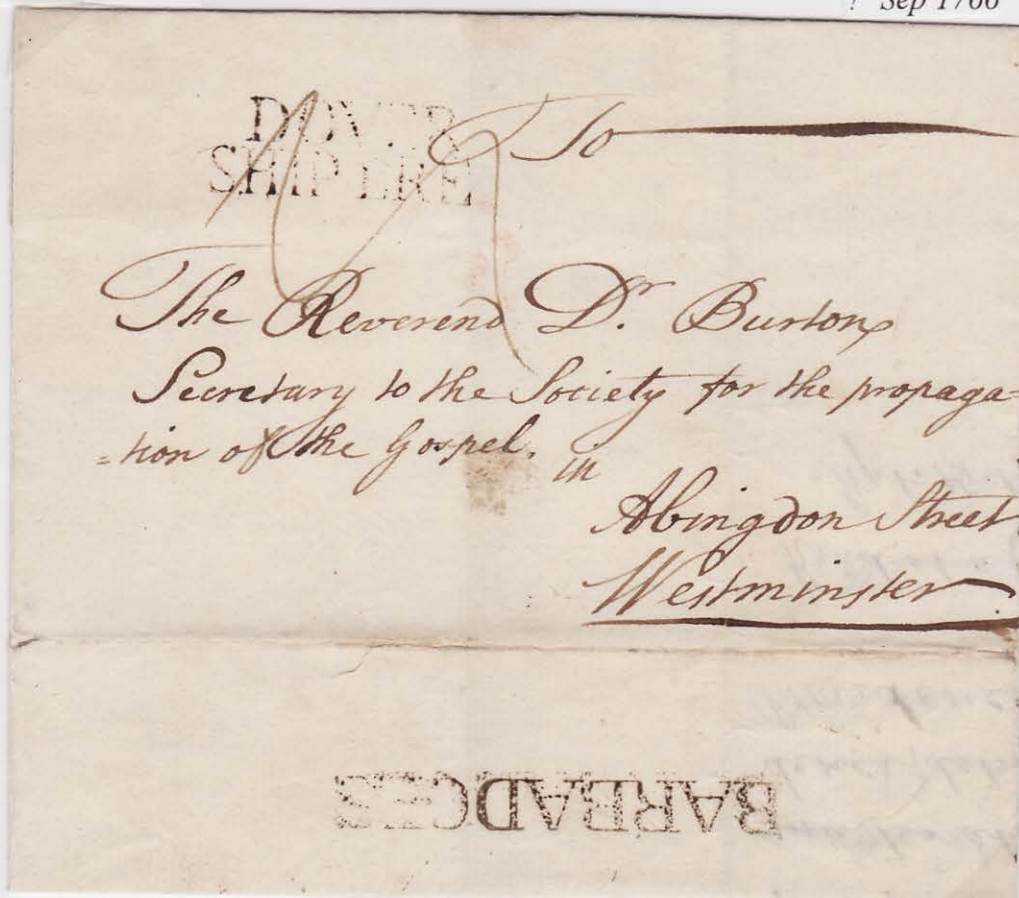 ? Sep 1766
DOVER
SHIP LRE
To
The Reverend Dr. Burton
Secretary to the Society for the propaga=
=tion of the Gospel. in
Abingdon Street
Westminster
BARBADOES